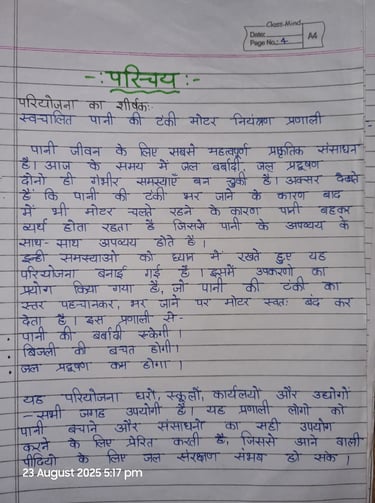 Class Mind
Date:
Page No.: 4
A4
-: परिचय :-
परियोजना का शीर्षक:
स्वचालित पानी की टंकी मोटर नियंत्रण प्रणाली
पानी जीवन के लिए सबसे महत्वपूर्ण प्राकृतिक संसाधन
है। आज के समय में जल बर्बादी जल प्रदूषण
दोनो ही गंभीर समस्याएँ बन चुकी है। अक्सर देखते
हैं कि पानी की टंकी भर जाने के कारण बाद
में भी मोटर चलते रहने के कारण पानी बहकर
व्यर्थ होता रहता है जिससे पानी के अपव्यय के
साथ- साथ अपव्यय होते है।
इन्ही समस्याओ को ध्यान में रखते हुए यह
परियोजना बनाई गई है। इसमें उपकरणो का
प्रयोग किया गया है, जो पानी की टंकी का
स्तर पहचानकर, भर जाने पर मोटर स्वतः बंद कर
देता है। इस प्रणाली से-
पानी की बर्बादी रुकेगी।
बिजली की बचत होगी।
जल प्रदूषण कम होगा।
यह परियोजना घरो, स्कूलों, कार्यलयो और उद्योगों
- सभी जगह उपयोगी है। यह प्रणाली लोगो को
पानी बचाने और संसाधनो का सही उपयोग
करने के लिए प्रेरित करती है, जिससे आने वाली
पीढियो के लिए जल संरक्षण संभव हो सके।
23 August 2025 5:17 pm